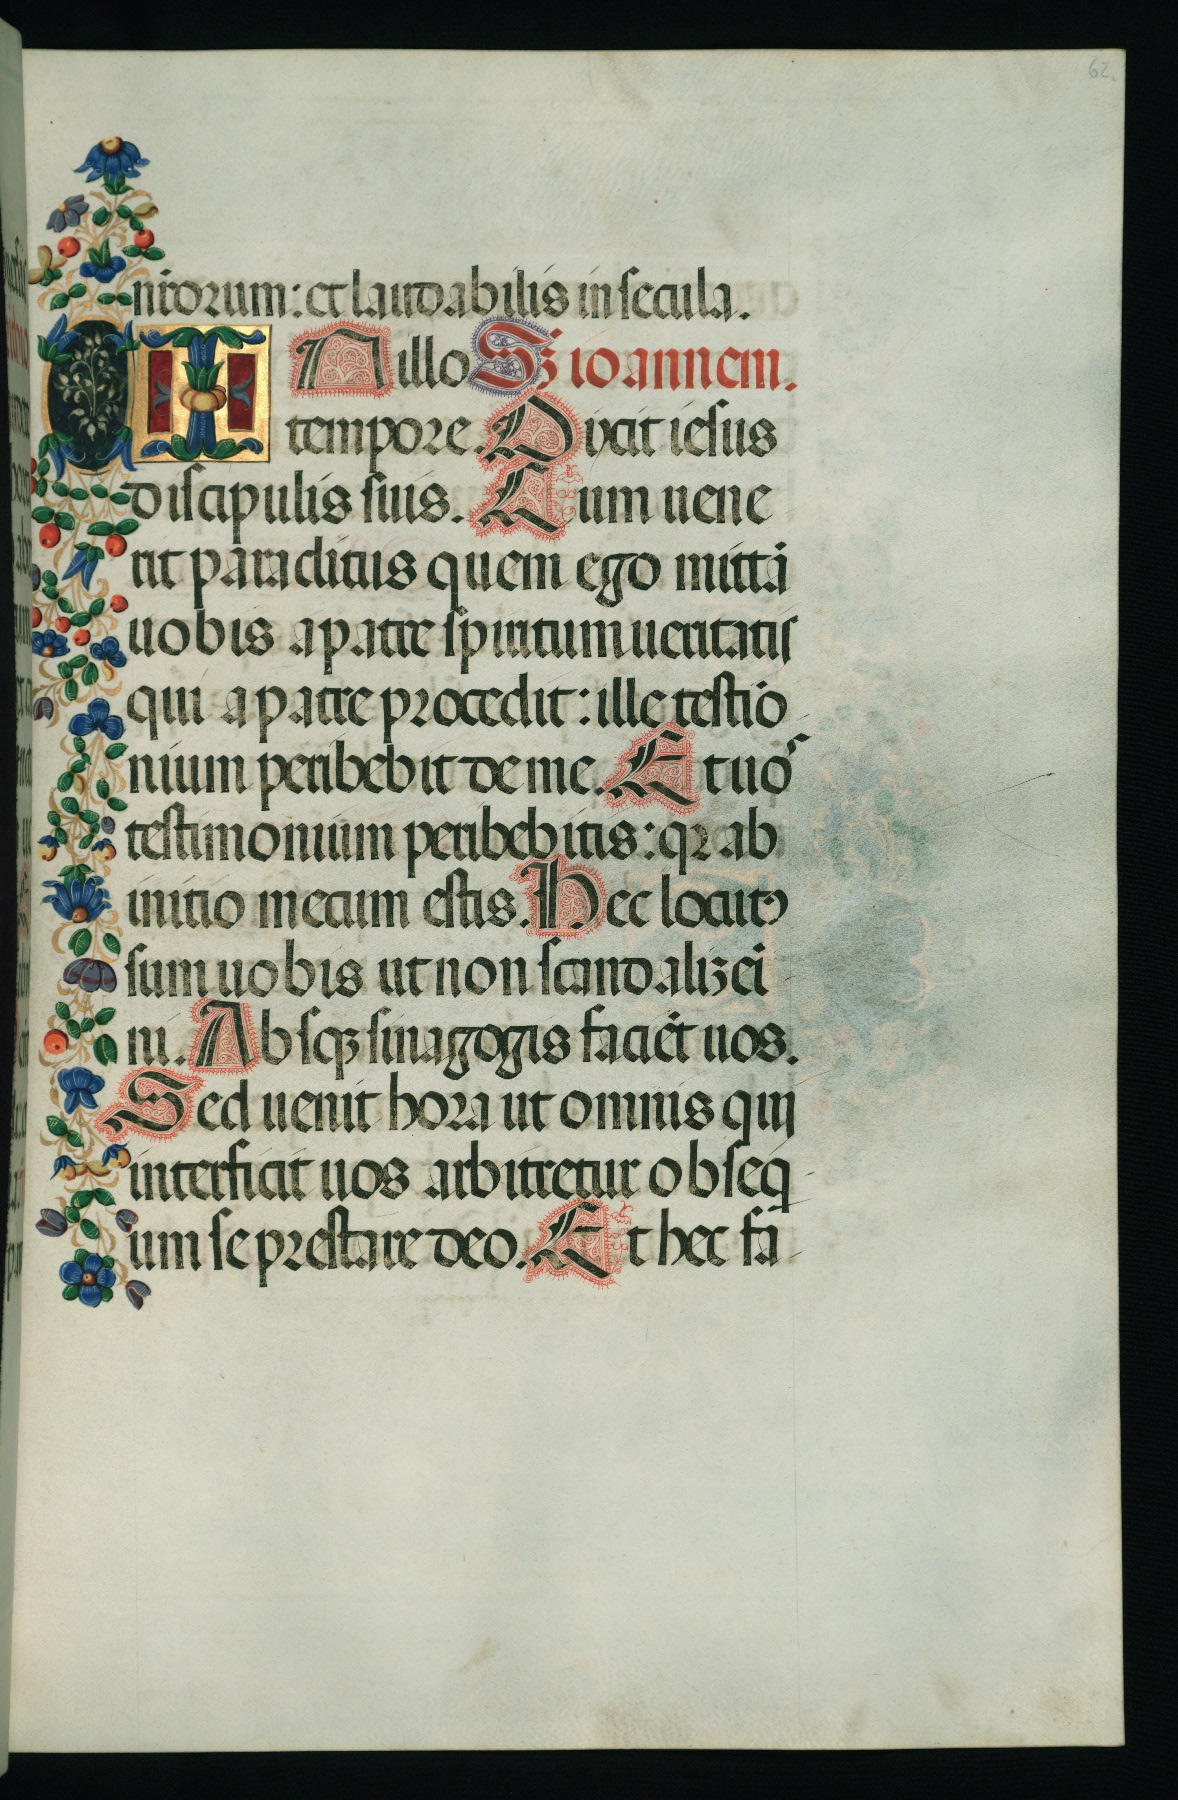 62.
nr̄orum: et laudabilis in secula.
IN illo Sʒ ioannem.
tempore. Dixit iesus
discipulis suis. Cum uene
rit paraclitus quem ego mittā
uobis a patre spiritum ueritatis
qui a patre procedit: ille testio
nium peribebit de me. Et uos
testimonium peribebitis: qꝛ ab
initio mecum estis. Hec locutꝰ
sum uobis ut non scandalizei
ni. Absqꝫ sinagogis faciēt uos.
Sed uenit hora ut omnis qui
interficit uos arbitretur obseq
ium se prestare deo. Et hec fa